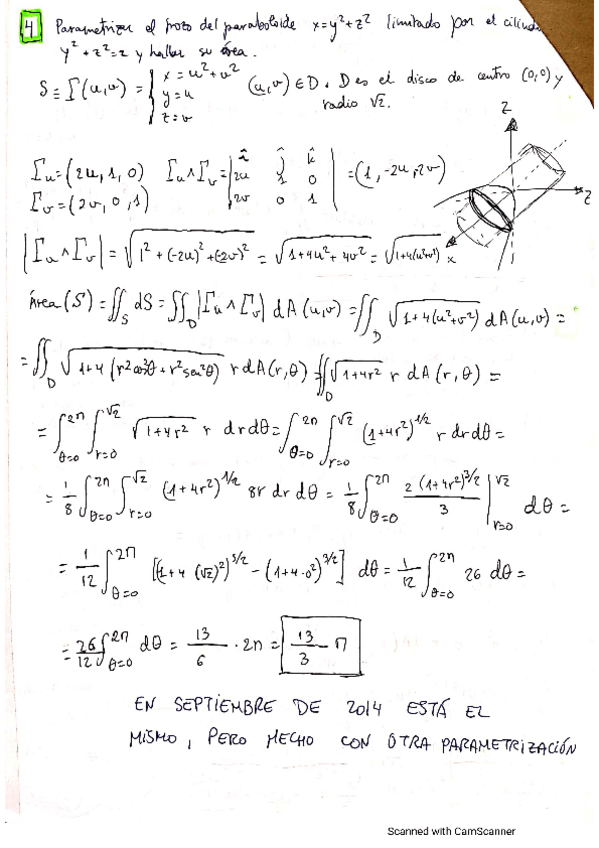 4 Parametrizar el trozo del paraboloide x=y²+z² limitado por el
y²+z²=2 y hallar su área.
S ≡ Γ(u,v) = { x = u²+v² y=u z=v (u,v) ∈ D. D es el disco de centro (0,0) y
radio √2.
Z
Γu=(2u,1,0) Γu∧Γv = | i j k 2u 1 0 2v 0 1 | = (1,-2u,2v)
Γv=(2v,0,1)
Z
x
|Γu∧Γv| = √(1²+(-2u)²+(-2v)²) = √(1+4u²+4v²) = √(1+4(u²+v²))
Área(S) = ∬_S dS = ∬_D |Γu∧Γv| dA(u,v) = ∬_D √(1+4(u²+v²)) dA(u,v) =
= ∬_D √(1+4(r²cos²θ+r²sen²θ)) r dA(r,θ) = ∬_D √(1+4r²) r dA(r,θ) =
= ∫_{θ=0}^{2π} ∫_{r=0}^{√2} √(1+4r²) r dr dθ = ∫_{θ=0}^{2π} ∫_{r=0}^{√2} (1+4r²)^{1/2} r dr dθ =
= 1/8 ∫_{θ=0}^{2π} ∫_{r=0}^{√2} (1+4r²)^{1/2} 8r dr dθ = 1/8 ∫_{θ=0}^{2π} 2(1+4r²)^{3/2}/3 |_{r=0}^{√2} dθ =
= 1/12 ∫_{θ=0}^{2π} [(1+4(√2)²)^{3/2} - (1+4·0²)^{3/2}] dθ = 1/12 ∫_{θ=0}^{2π} 26 dθ =
= 26/12 ∫_{θ=0}^{2π} dθ = 13/6 · 2π = 13/3 π
EN SEPTIEMBRE DE 2014 ESTÁ EL
MISMO, PERO HECHO CON OTRA PARAMETRIZACIÓN
Scanned with CamScanner